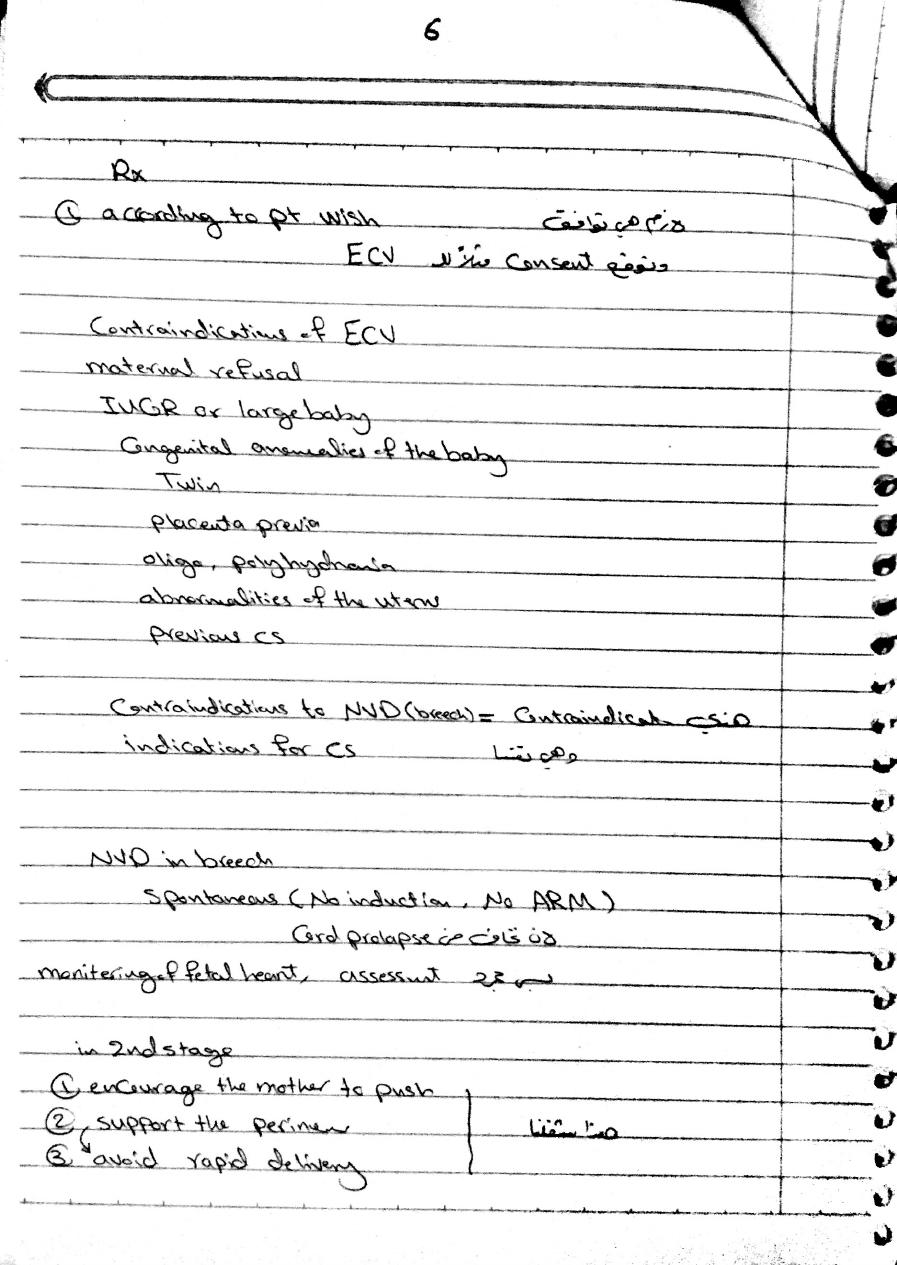 6
Rx
① according to pt wish لازم هي توافق
ECV مثلا لل consent ونوقع
Contraindications of ECV
maternal refusal
IUGR or large baby
Congenital anomalies of the baby
Twin
placenta previa
oligo, polyhydramnia
abnormalities of the uterus
previous CS
Contraindications to NVD (breech) = Contraindicat
indications for CS
NVD in breech
Spontaneous (No induction, No ARM)
Cord prolapse لان نخاف من
monitering of fetal heart, assessmt
in 2nd stage
① encourage the mother to push
② support the perineu هذا شغلنا
③ avoid rapid delivery